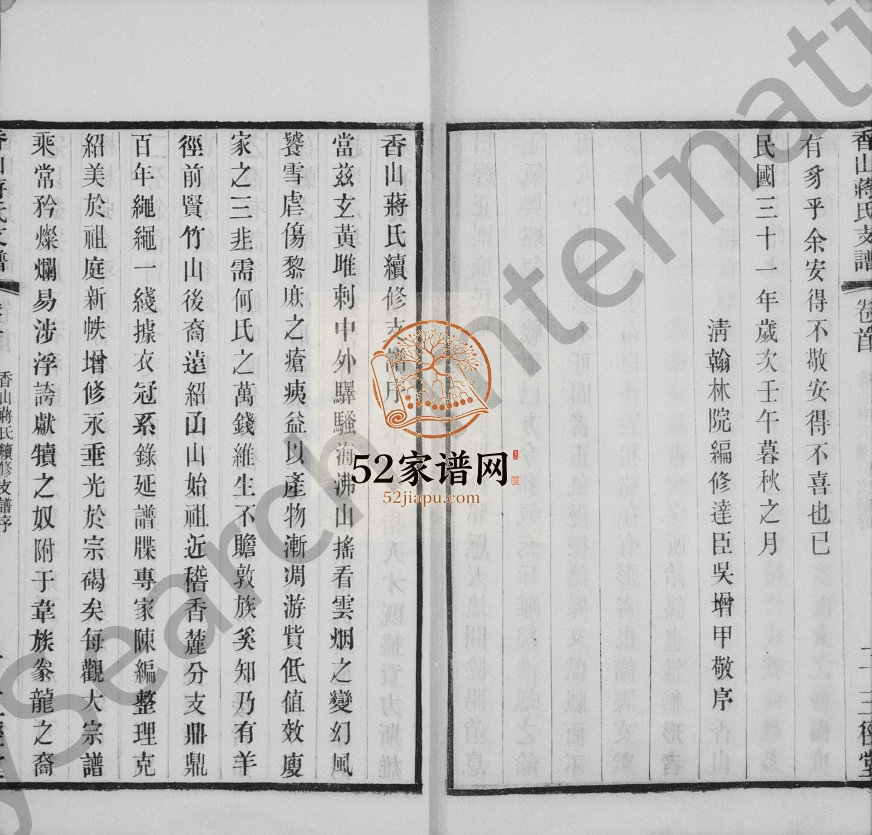 香山蔣氏支譜
卷首
三徑堂
有豸乎余安得不敬安得不喜也已
民國三十一年歲次壬午暮秋之月
清翰林院編修達臣吳增甲敬序
香山蔣氏續修支譜序
當茲玄黃雎剌中外驛騷海沸山搖看雲烟之變幻風
饕雪虐傷黎庶之瘡痍益以產物漸凋游貲低值效廋
家之三韭需何氏之萬錢維生不贍敦族奚知乃有羊
徑前賢竹山後裔遠紹山始祖近稽香麓分支鼎鼎
百年繩繩一綫據衣冠系錄延譜牒專家陳編整理克
紹美於祖庭新帙增修永垂光於宗碣矣每觀大宗譜
乘常矜燦爛易涉浮誇獻犢之奴附于韋族豢龍之裔
香山蔣氏支譜
香山蔣氏續修支譜序
52家谱网
52jiapu.com
Search International